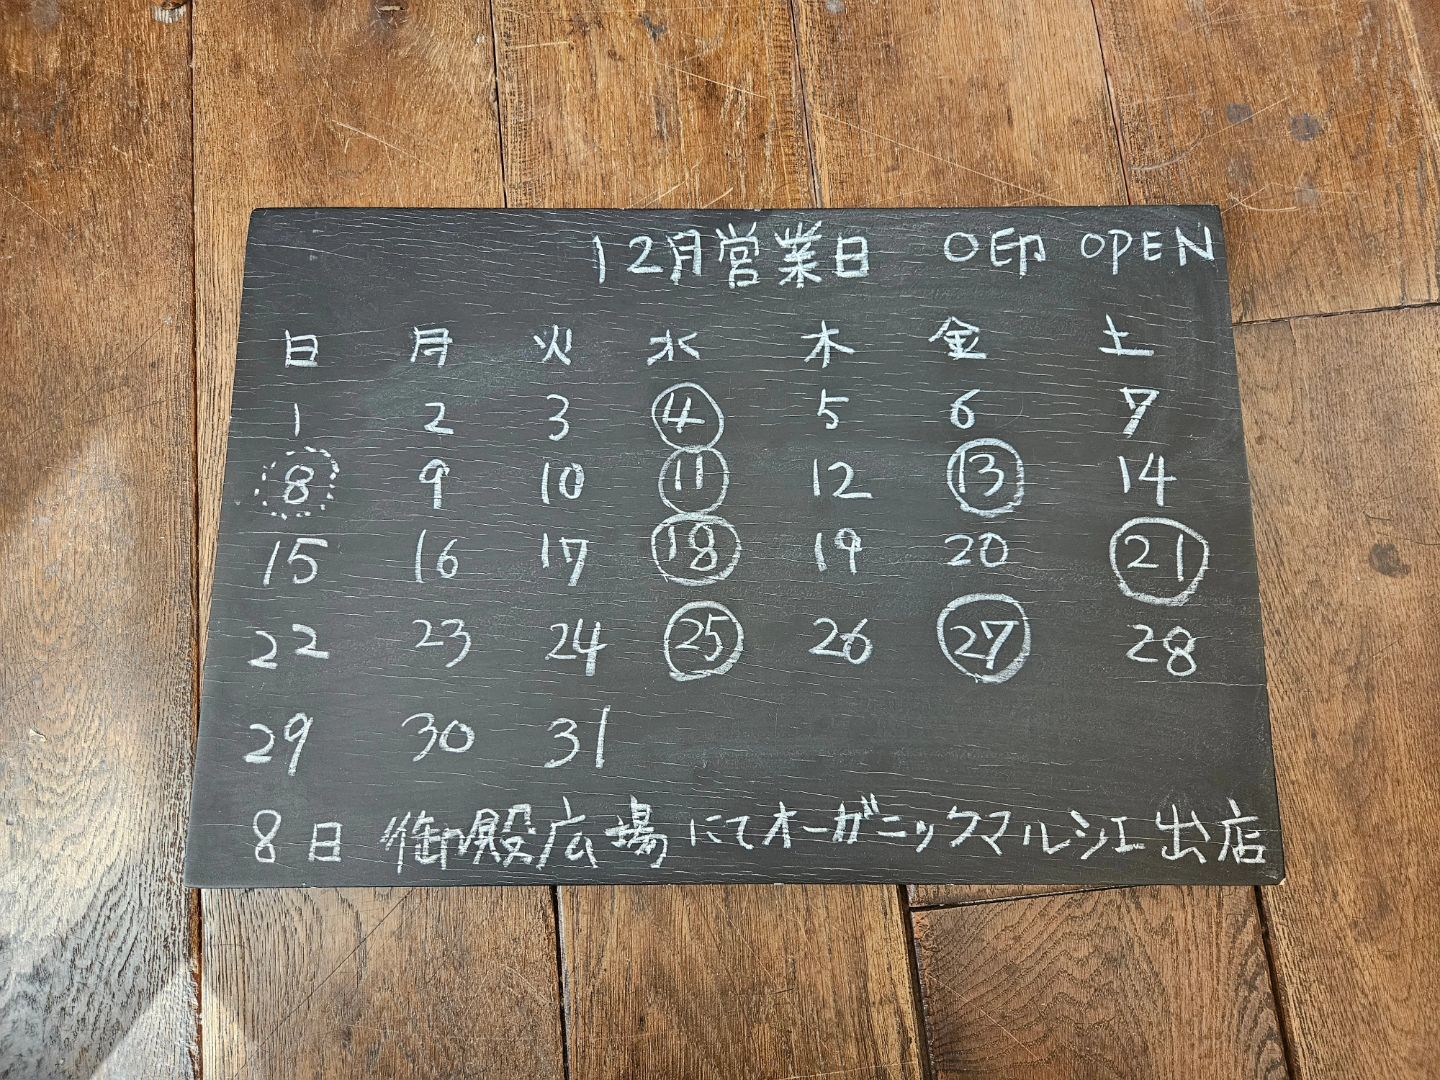 12月営業日 〇印 OPEN
日 月 火 水 木 金 土
1 2 3 4 5 6 7
8 9 10 11 12 13 14
15 16 17 18 19 20 21
22 23 24 25 26 27 28
29 30 31
8日 御殿広場にてオーガニックマルシェ出店